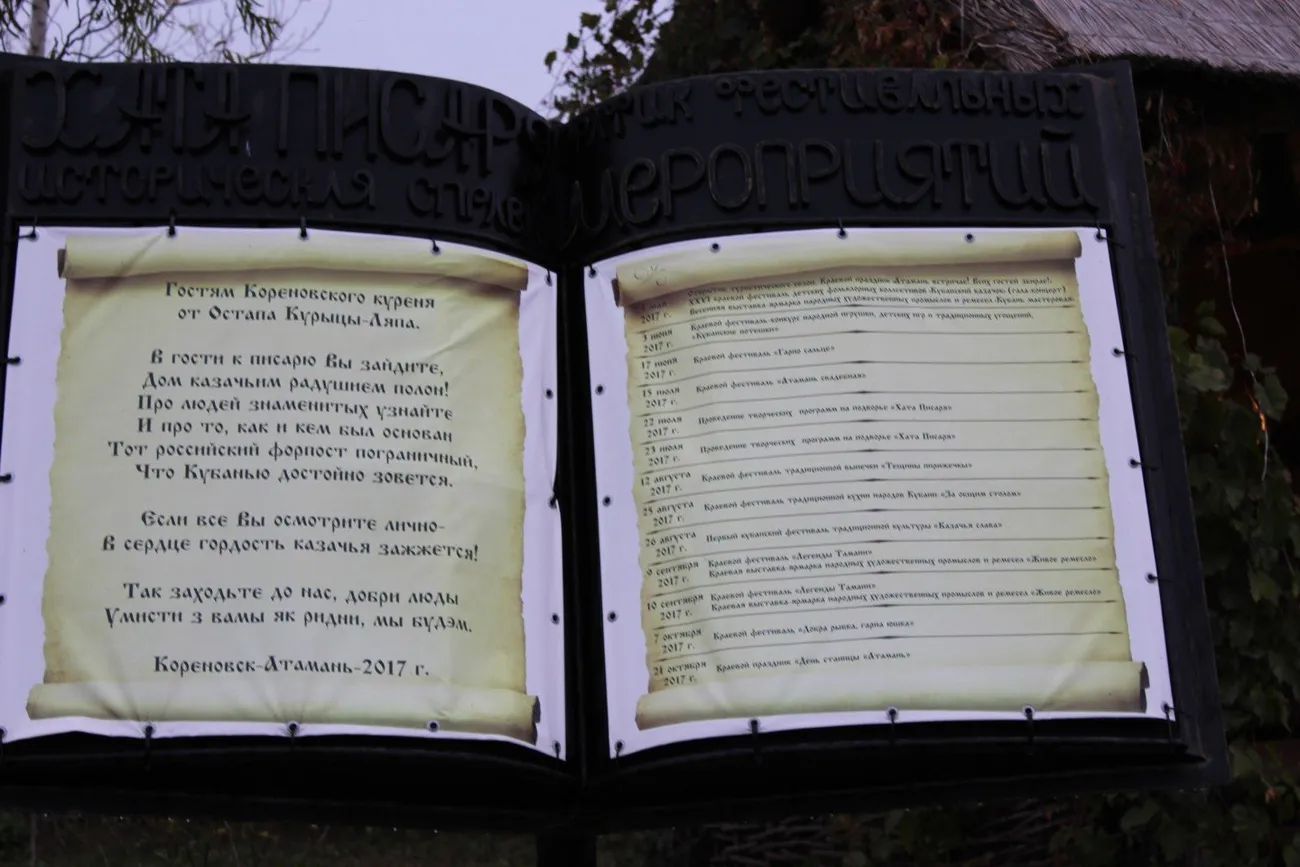 ХАТА ПИСАР
ИСТОРИЧЕСКАЯ СПРАВ
Гостям Кореновского куреня
от Остапа Курыцы-Ляпа.
В гости к писарю Вы зайдите,
Дом казачьим радушием полон!
Про людей знаменитых узнайте
И про то, как и кем был основан
Тот российский форпост пограничный,
Что Кубанью достойно зовется.
Если все Вы осмотрите лично-
В сердце гордость казачья зажжется!
Так заходьте до нас, добри люды
Умисти з вамы як ридни, мы будэм.
Кореновск-Атамань-2017 г.
ФЕСТИВАЛЬНЫХ
МЕРОПРИЯТИЙ
Открытие туристического сезона. Краевой праздник «Атамань встречае! Всех гостей
XXVI краевой фестиваль детских фольклорных коллективов «Кубанский казачок» (гала-концерт)
2017 г. Весенняя выставка-ярмарка народных художественных промыслов и ремесел «Кубань мастеровая»
3 июня Краевой фестиваль-конкурс народной игрушки, детских игр и традиционных угощений,
2017 г. «Кубанские петешки»
17 июня Краевой фестиваль «Гарно сальце»
2017 г.
15 июля Краевой фестиваль «Атамань свадебная»
2017 г.
22 июля Проведение творческих программ на подворье «Хата Писаря»
2017 г.
23 июля Проведение творческих программ на подворье «Хата Писаря»
2017 г.
12 августа Краевой фестиваль традиционной выпечки «Тещины пирижечкы»
2017 г.
25 августа Краевой фестиваль традиционной кухни народов Кубани «За общим столом»
2017 г.
26 августа Первый кубанский фестиваль традиционной культуры «Казачья слава»
2017 г.
9 сентября Краевой фестиваль «Легенды Тамани»
2017 г. Краевая выставка-ярмарка народных художественных промыслов и ремесел «Живое ремесло»
10 сентября Краевой фестиваль «Легенды Тамани»
2017 г. Краевая выставка-ярмарка народных художественных промыслов и ремесел «Живое ремесло»
7 октября Краевой фестиваль «Добра рыбка, гарна юшка»
2017 г.
21 октября Краевой праздник «День станицы «Атамань»
2017 г.